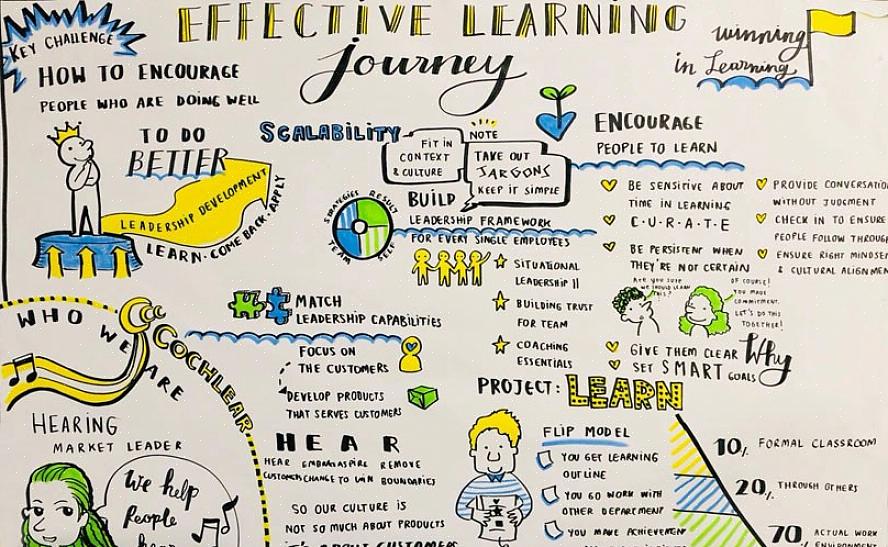 EFFECTIVE LEARNING
Journey
KEY CHALLENGE
HOW TO ENCOURAGE
PEOPLE WHO ARE DOING WELL
TO DO
BETTER
LEADERSHIP DEVELOPMENT
LEARN · COME BACK · APPLY
winning
in Learning
SCALABILITY
FIT IN
CONTEXT
& CULTURE
NOTE
TAKE OUT
JARGONS
KEEP IT SIMPLE
BUILD
LEADERSHIP FRAMEWORK
FOR EVERY SINGLE EMPLOYEES
STRATEGIES
RESULT
TEAM
SELF
SITUATIONAL
LEADERSHIP II
BUILDING TRUST
FOR TEAM
COACHING
ESSENTIALS
ENCOURAGE
PEOPLE TO LEARN
BE SENSITIVE ABOUT
TIME IN LEARNING
C·U·R·A·T·E
BE PERSISTENT WHEN
THEY'RE NOT CERTAIN
PROVIDE
WITHOUT JUDGMENT
CHECK IN TO ENSURE
PEOPLE FOLLOW
ENSURE RIGHT
& CULTURAL
ARE YOU SURE
WE SHOULD LEARN
THIS?
OF COURSE!
YOU MADE
COMMITMENT.
LET'S DO THIS
TOGETHER!
GIVE THEM CLEAR Why
SET SMART GOALS
MATCH
LEADERSHIP CAPABILITIES
FOCUS ON
THE CUSTOMERS
DEVELOP PRODUCTS
THAT SERVES CUSTOMERS
WHO WE ARE
COCHLEAR
HEARING
MARKET LEADER
We help
People
HEAR
HEAR EMBRACE ASPIRE REMOVE
CUSTOMERS CHANGE TO WIN BOUNDARIES
SO OUR CULTURE IS
NOT SO MUCH ABOUT PRODUCTS
IT'S ABOUT CUSTOMERS
PROJECT: LEARN
FLIP MODEL
YOU GET LEARNING
OUTLINE
YOU GO WORK WITH
OTHER DEPARTMENT
YOU MAKE ACHIEVEMENT
10% FORMAL CLASSROOM
20% THROUGH OTHERS
70% ACTUAL WORK
ENVIRONMENT